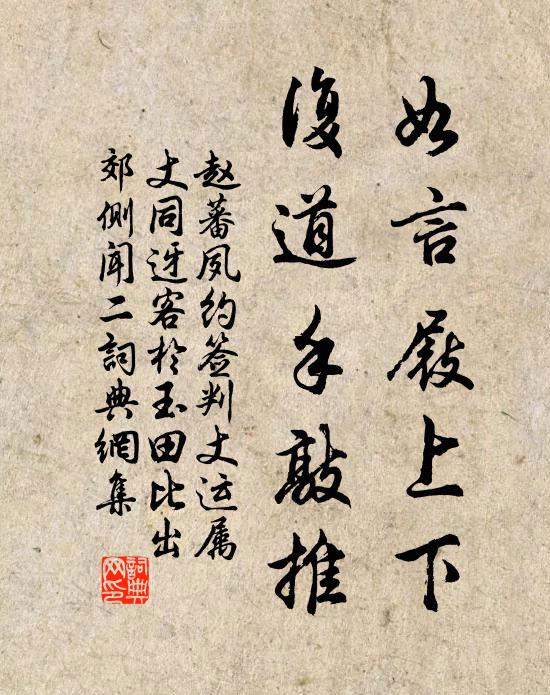 如言屐上下
復道手敲推
赵蕃夙约签判丈运属
丈同迓客於玉田比出
郊侧闻二詞典網集
詞典
网印